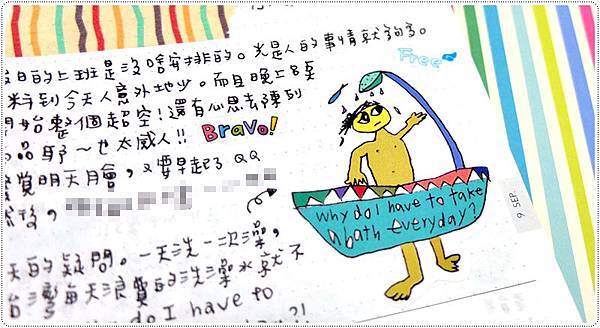 日的上班是沒啥安排的。光是人的事情就夠多。
Free
料到今天人意外地少。而且晚上8點
開始整個超空!還有心思去陳列
商品耶~也太感人!! BRaVo!
覺明天月會,又要早起了QQ
然後,
why do I have to take
a bath everyday?
9 SEP
天的疑問。一天洗一次澡,
台灣每天浪費的洗澡水就不
do I have to